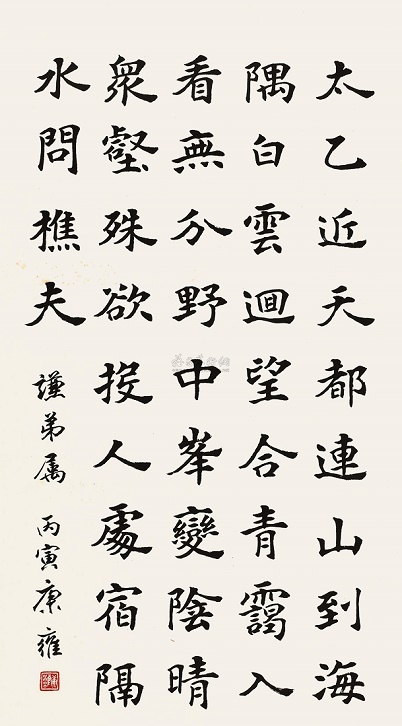 太乙近天都連山到海
隅白雲迴望合青靄入
看無分野中峯變陰晴
衆壑殊欲投人處宿隔
水問樵夫
謹弟属 丙寅康雍